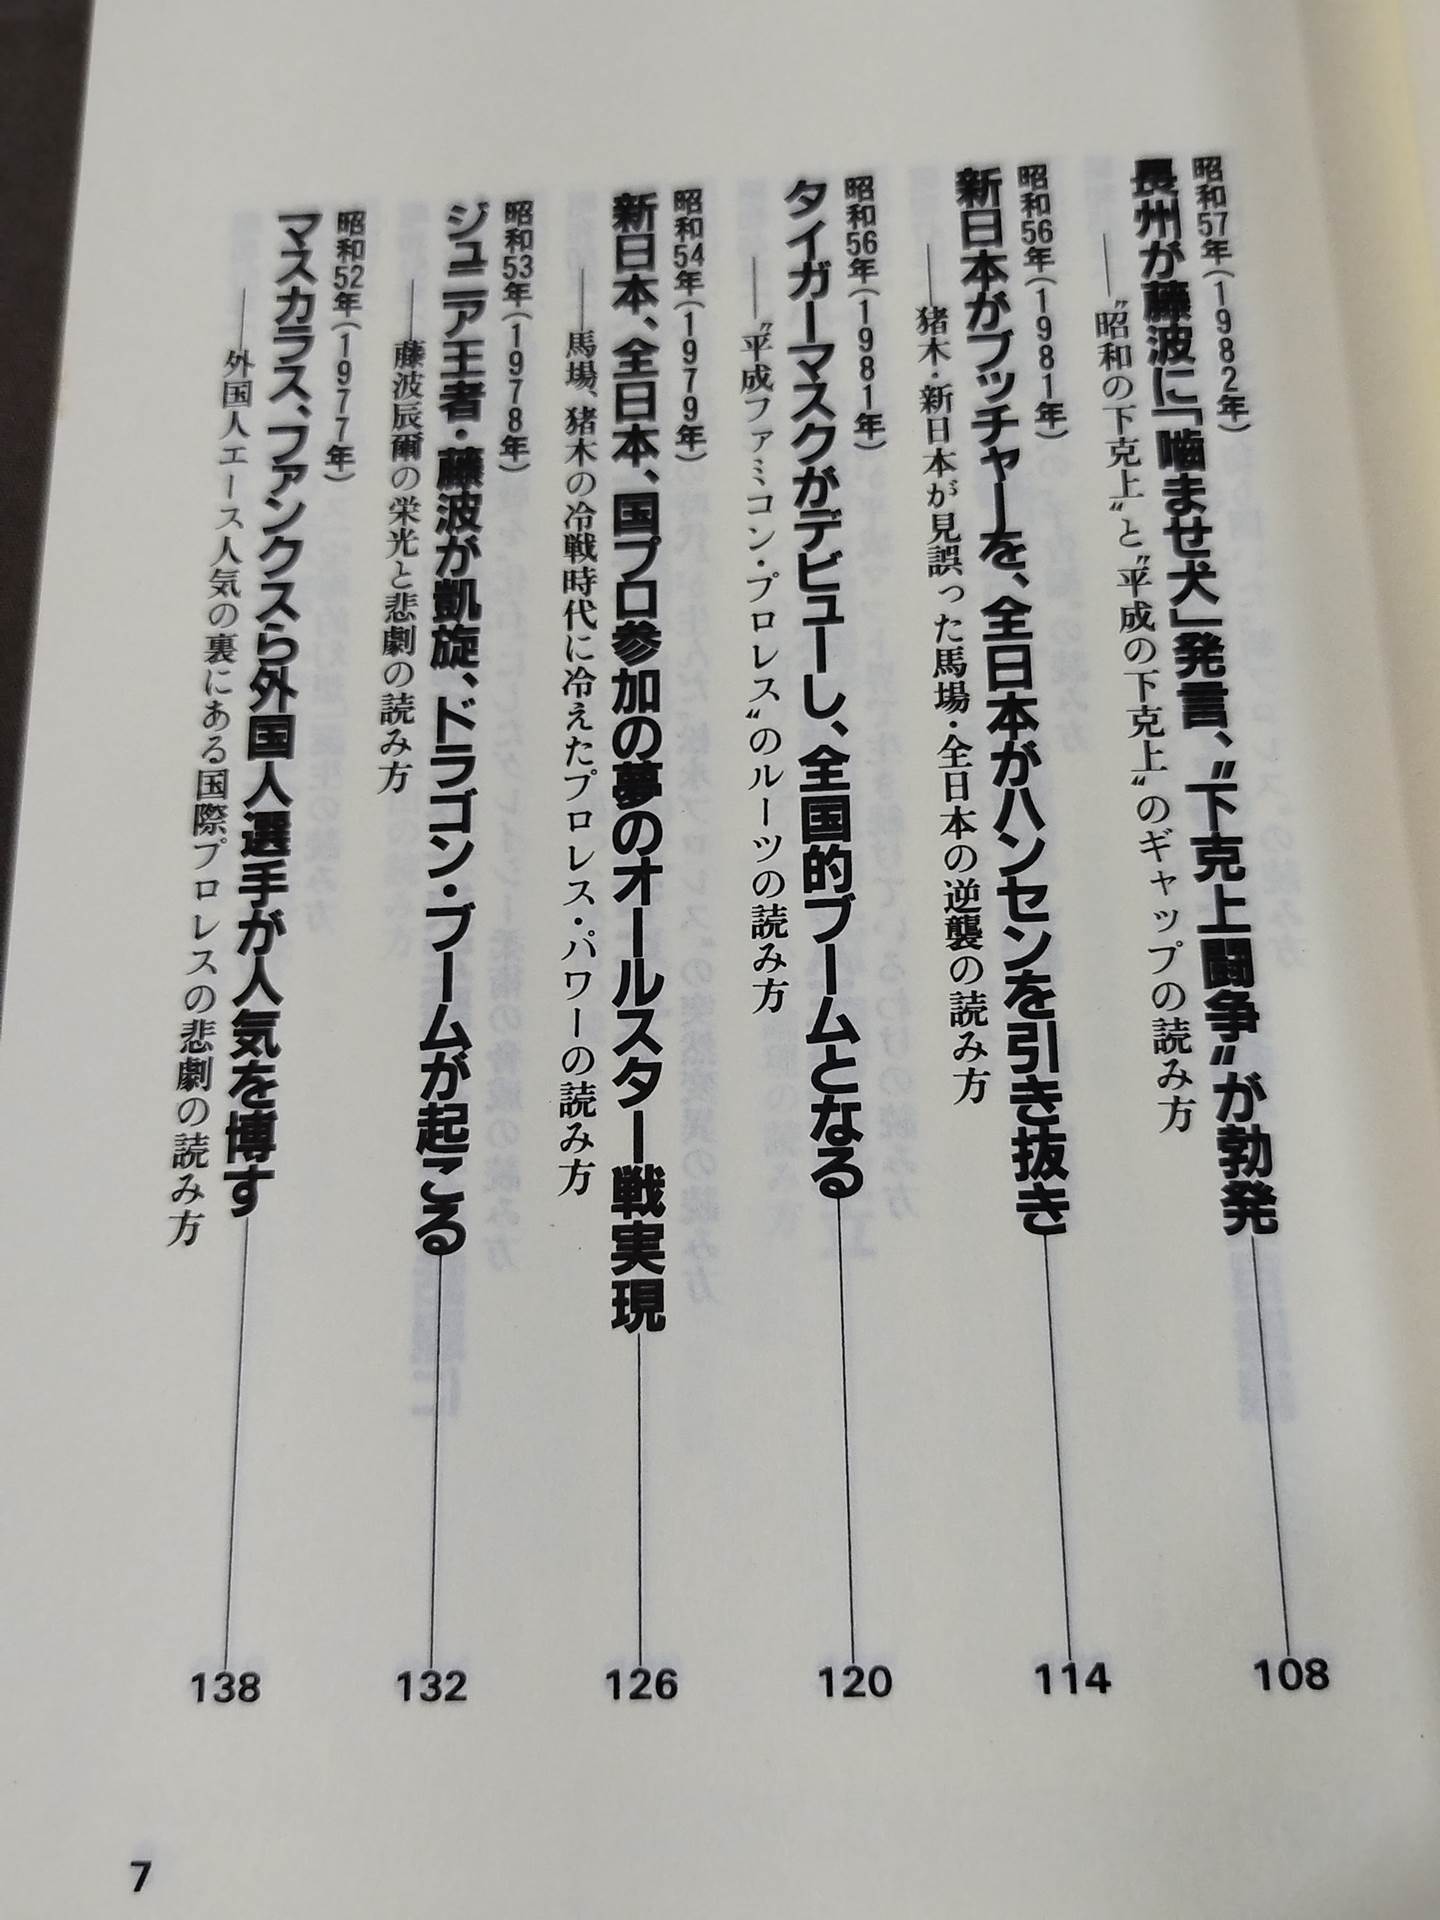 昭和57年(1982年)
長州が藤波に「噛ませ犬」発言、〝下克上闘争〟が勃発
108
——〝昭和の下克上〟と〝平成の下克上〟のギャップの読み方
昭和56年(1981年)
新日本がブッチャーを、全日本がハンセンを引き抜き
114
——猪木・新日本が見誤った馬場・全日本の逆襲の読み方
昭和56年(1981年)
タイガーマスクがデビューし、全国的ブームとなる
120
——〝平成ファミコン・プロレス〟のルーツの読み方
昭和54年(1979年)
新日本、全日本、国プロ参加の夢のオールスター戦実現
126
——馬場、猪木の冷戦時代に冷えたプロレス・パワーの読み方
昭和53年(1978年)
ジュニア王者・藤波が凱旋、ドラゴン・ブームが起こる
132
——藤波辰爾の栄光と悲劇の読み方
昭和52年(1977年)
マスカラス、ファンクスら外国人選手が人気を博す
138
——外国人エース人気の裏にある国際プロレスの悲劇の読み方
7